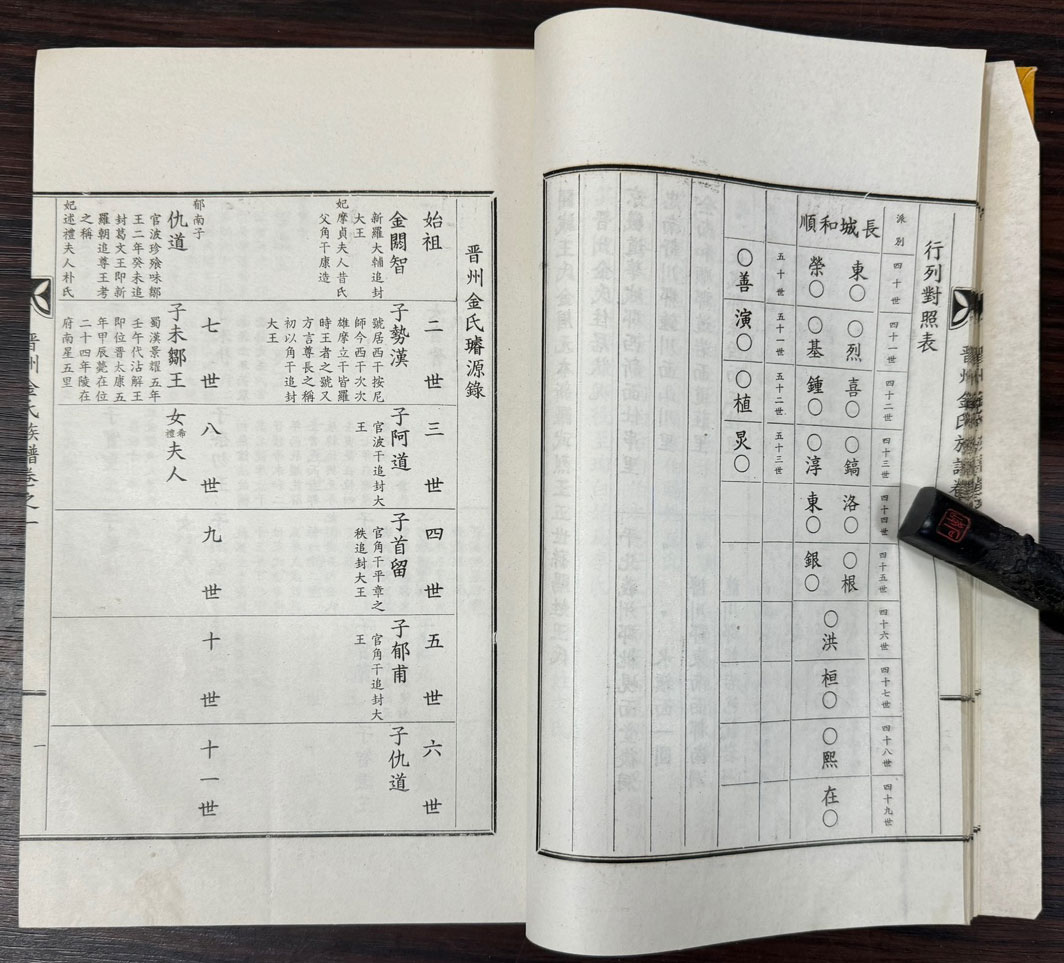 行列對照表
派別
四十世
四十一世
四十二世
四十三世
四十四世
四十五世
四十六世
四十七世
四十八世
四十九世
順和城長
東〇
〇烈
喜〇
〇鎬
洛〇
〇根
榮〇
〇基
鍾〇
〇淳
東〇
銀〇
〇洪
桓〇
〇熙
在〇
五十世
五十一世
五十二世
五十三世
〇善
演〇
〇植
炅〇
晋州金氏璿源錄
始祖
二世
三世
四世
五世
六世
金閼智
新羅大輔追封
大王
妃摩貞夫人昔氏
父角干康造
子勢漢
號居西干按尼
師今西干次次
雄摩立干皆羅
時王者之號又
方言尊長之稱
初以角干追封
大王
子阿道
官波干追封大
王
子首留
官角干平章之
秩追封大王
子郁甫
官角干追封大
王
子仇道
七世
八世
九世
十世
十一世
郁甫子
仇道
官波珍飱味鄒
王二年癸未追
封葛文王即新
羅朝追尊王考
之稱
妃述禮夫人朴氏
子未鄒王
蜀漢景耀五年
壬午代沾解王
即位晋太康五
年甲辰薨在位
二十四年陵在
府南星五里
女希禮夫人
晋州金氏族譜卷之一
一